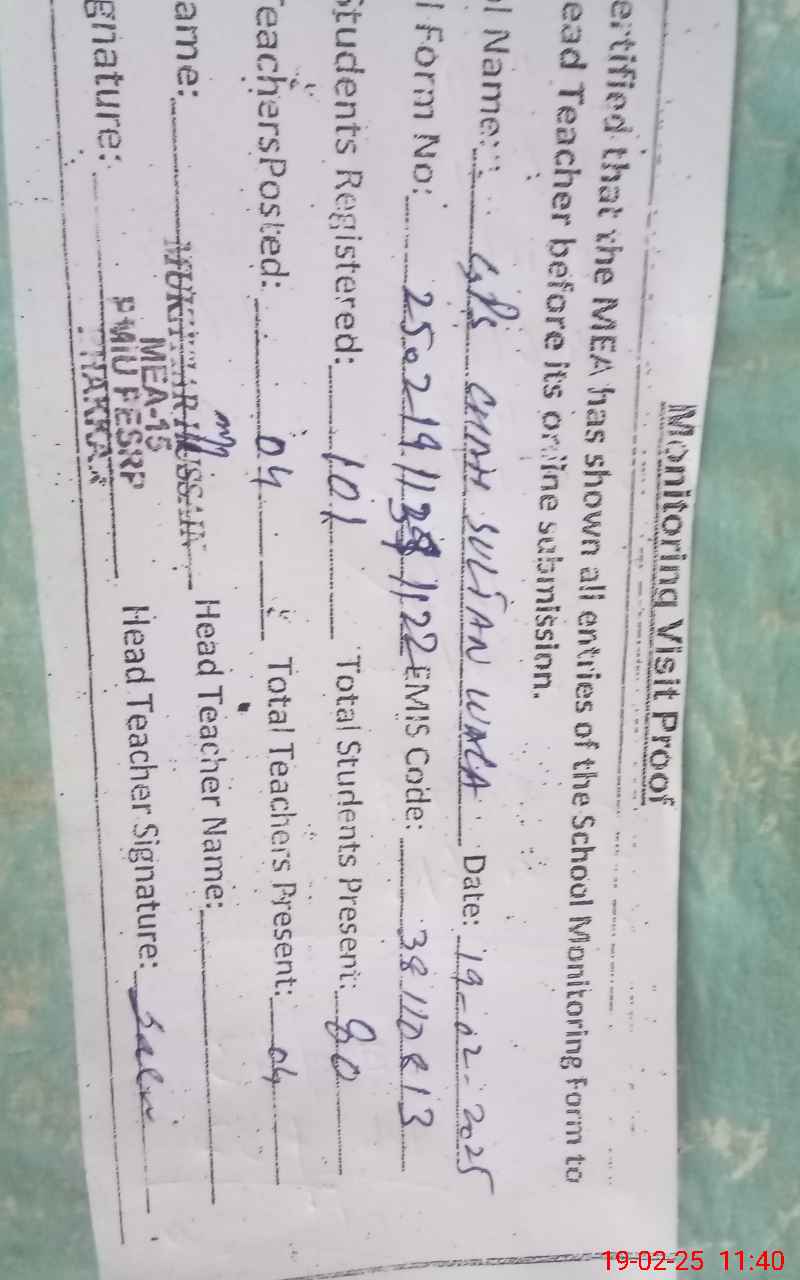 Monitoring Visit Proof
ertified that the MEA has shown all entries of the School Monitoring Form to
ead Teacher before its online submission.
l Name: GPS CHAH SULTAN WALA Date: 19-02-2025
l Form No: EMIS Code: 38110813
Students Registered: 101 Total Students Present: 80
eachersPosted: 04 Total Teachers Present: 04
ame: MUKHTIAR HUSSAIN Head Teacher Name:
MEA-15
gnature: PMIU PESRP Head Teacher Signature:
19-02-25 11:40